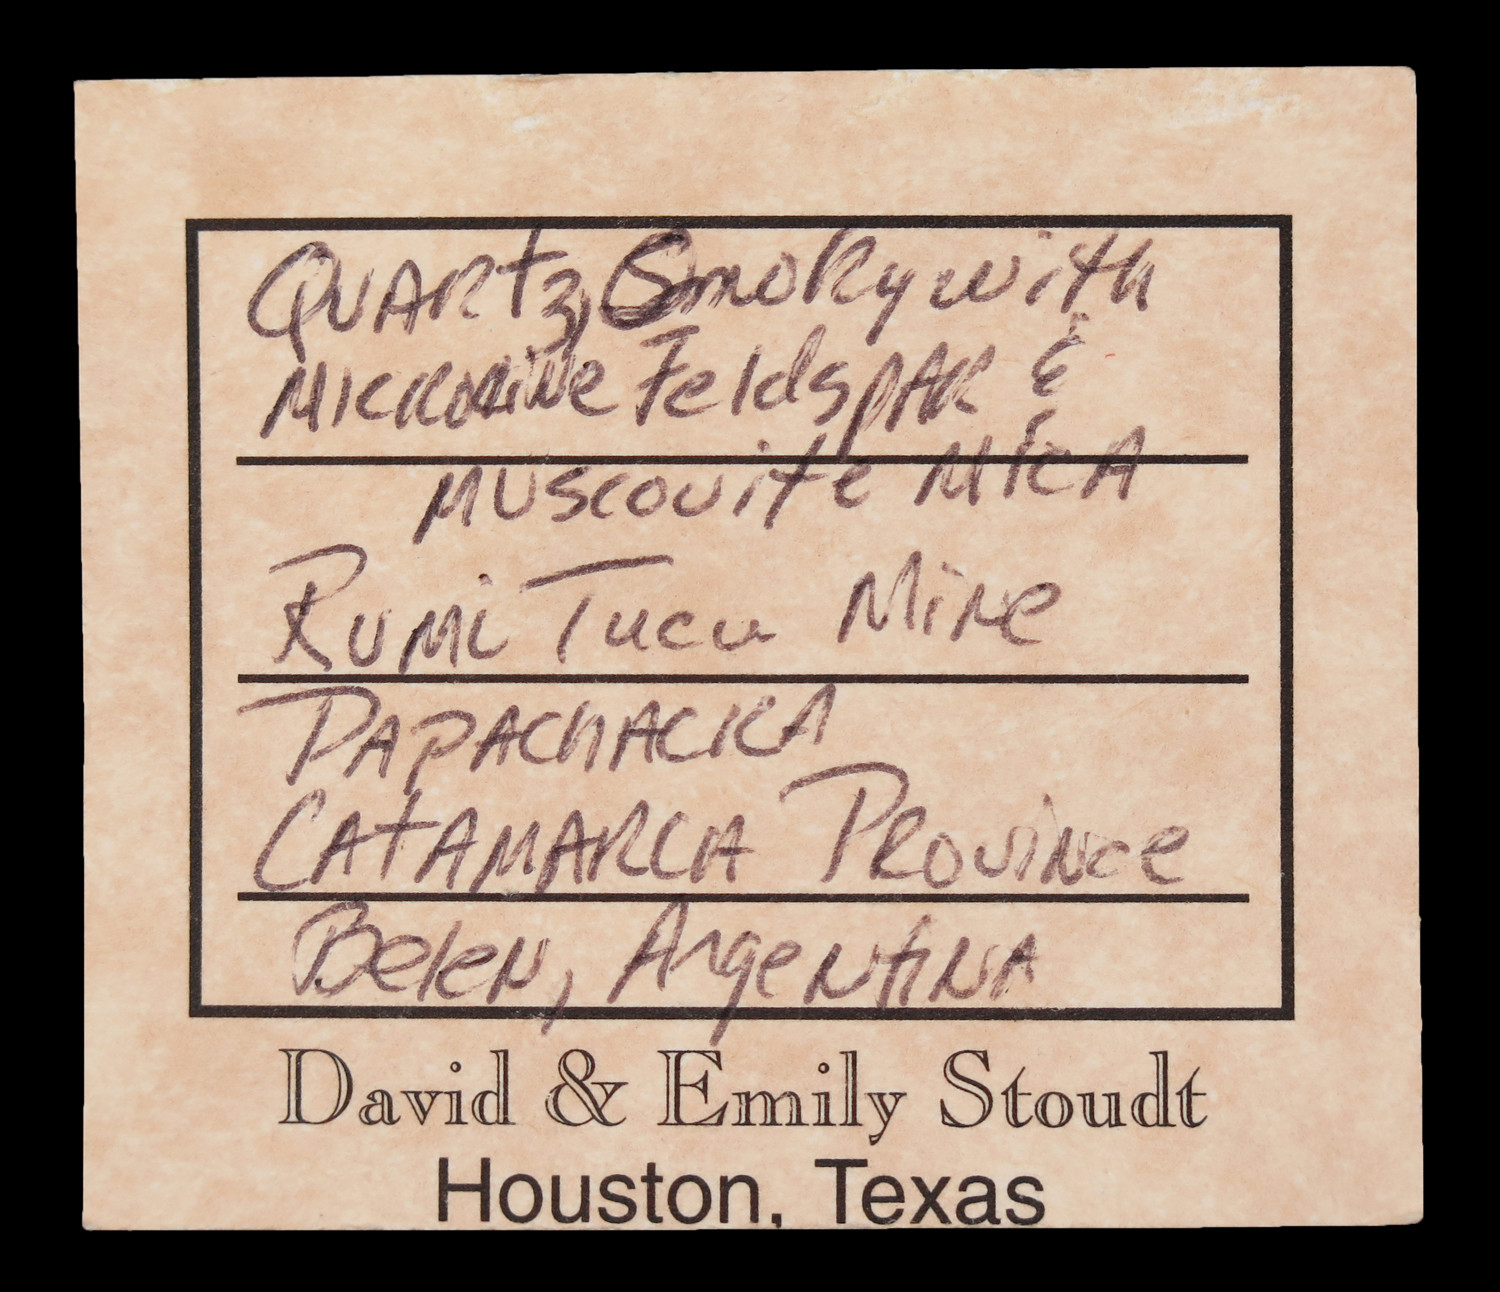 Quartz, Smoky with
Microcline Feldspar &
Muscovite Mica
Rumi Tucu Mine
Papachacra
Catamarca Province
Belen, Argentina
David & Emily Stoudt
Houston, Texas